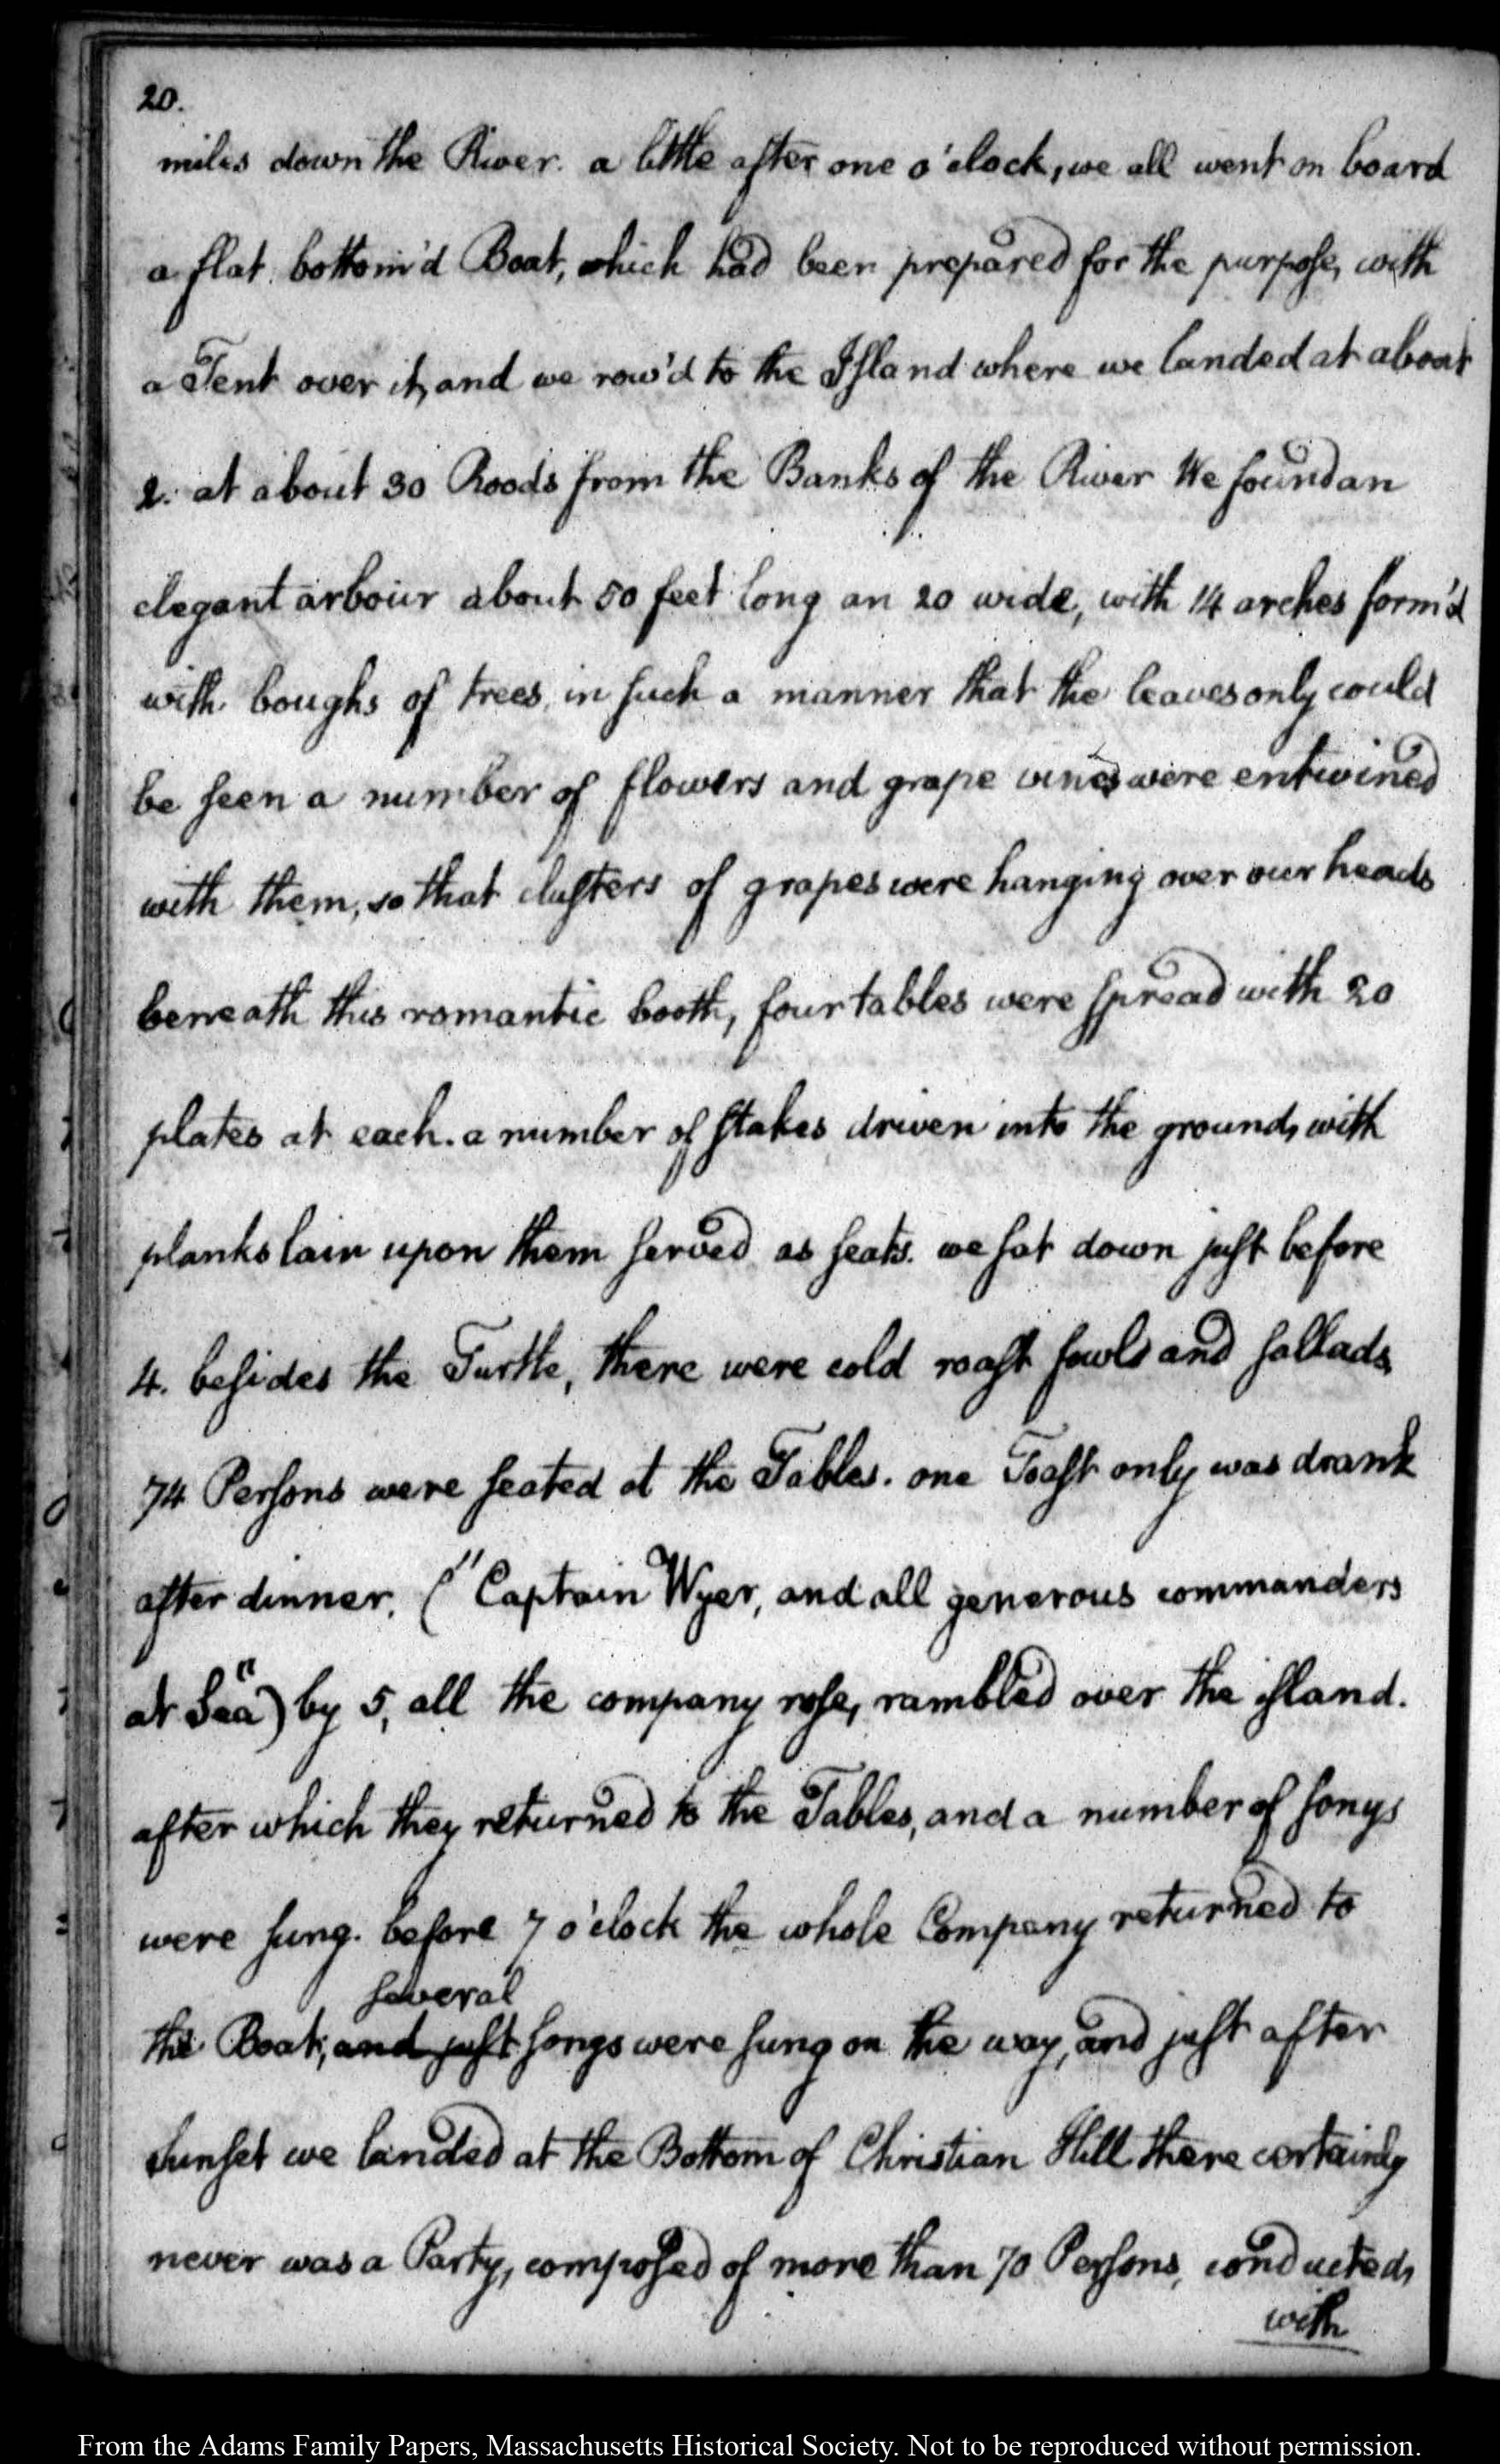 20.
miles down the River. a little after one o'clock, we all went on board
a flat bottom'd Boat, which had been prepared for the purpose, with
a Tent over it, and we row'd to the Island where we landed at about
2. at about 30 Roods from the Banks of the River We found an
elegant arbour about 50 feet long an 20 wide, with 14 arches form'd
with boughs of trees in such a manner that the leaves only could
be seen a number of flowers and grape vines were entwined
with them, so that clusters of grapes were hanging over our heads
beneath this romantic booth, four tables were spread with 20
plates at each. a number of stakes driven into the ground, with
planks lain upon them served as seats. we sat down just before
4. besides the Turtle, there were cold roast fowls and sallads,
74 Persons were seated at the Tables. one Toast only was drank
after dinner. ("Captain Wyer, and all generous commanders
at Sea") by 5, all the company rose, rambled over the island.
after which they returned to the Tables, and a number of songs
were sung. before 7 o'clock the whole Company returned to
several
the Boat, and just songs were sung on the way, and just after
sunset we landed at the Bottom of Christian Hill there certainly
never was a Party, composed of more than 70 Persons, conducted,
with
From the Adams Family Papers, Massachusetts Historical Society. Not to be reproduced without permission.